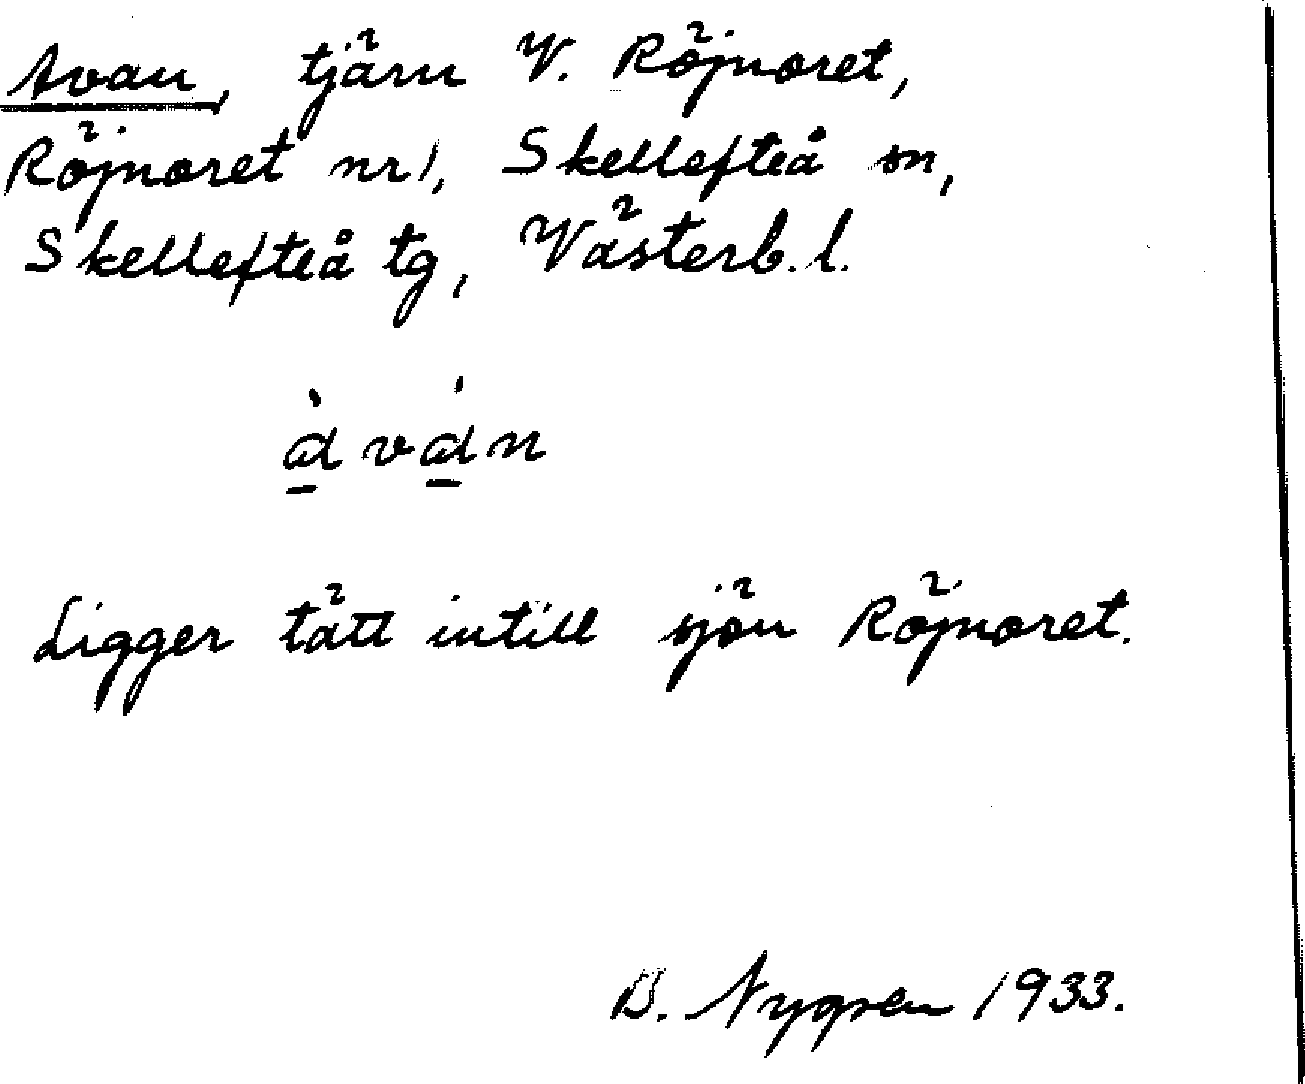 Avan, tjärn V. Röjnoret,
Röjnoret nr 1, Skellefteå sn,
Skellefteå tg, Västerb. l.
àván
Ligger tätt intill sjön Röjnoret.
B. Nygren 1933.